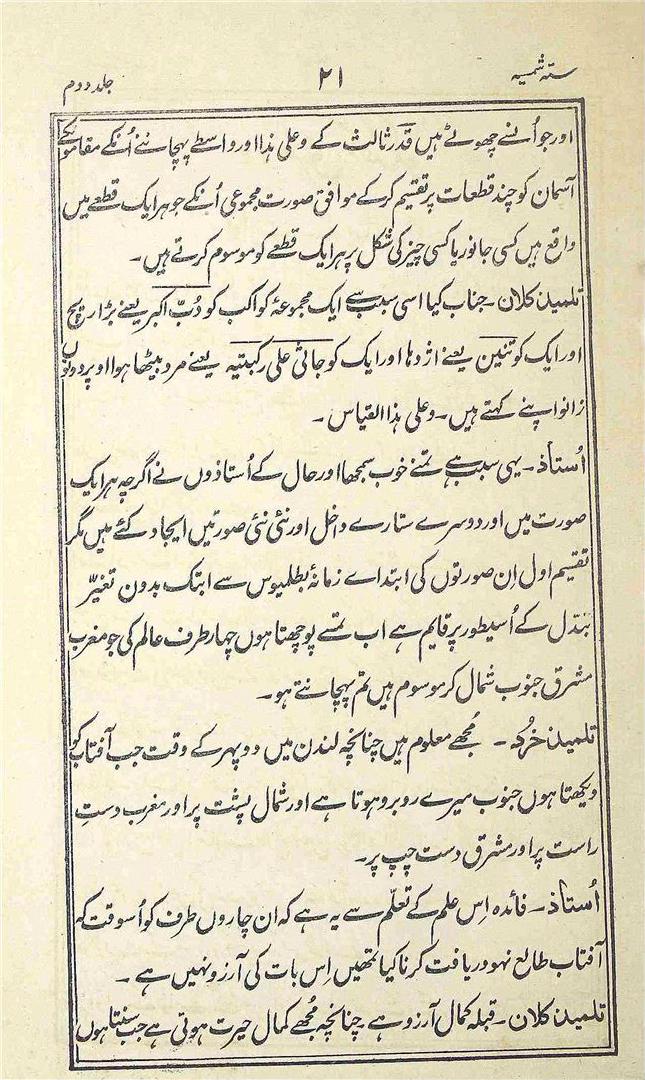 ستہ شمسیہ ۲۱ جلد دوم
اور جو اُنسے چھوٹے ہیں قدر ثالث کے وعلی ہذا اور واسطے پہچاننے اُنکے مقاموں کے
آسمان کو چند قطعات پر تقسیم کرکے موافق صورت مجموعی اُنکے جو ہر ایک قطعے میں
واقع ہیں کسی جانور یا کسی چیز کی شکل پر ہر ایک قطعے کو موسوم کرتے ہیں۔
تلمیذ کلان۔ جناب کیا اسی سبب سے ایک مجموعۂ کواکب کو دُبّ اکبر یعنے بڑا ریچھ
اور ایک کو تنین یعنے اژدہا اور ایک کو جاثی علی رکبتیہ یعنے مرد بیٹھا ہوا اوپر دونوں
زانو اپنے کہتے ہیں۔ وعلی ہذا القیاس۔
اُستاذ۔ یہی سبب ہے تمنے خوب سمجھا اور حال کے اُستاذوں نے اگرچہ ہر ایک
صورت میں اور دوسرے ستارے داخل اور نئی نئی صورتیں ایجاد کئے ہیں مگر
تقسیم اول اِن صورتوں کی ابتداے زمانۂ بطلمیوس سے ابتک بدون تغیّر
تبدّل کے اُسیطور پر قایم ہے اب تمسے پوچھتا ہوں چہار طرف عالم کی جو مغرب
مشرق جنوب شمال کر موسوم ہیں تم پہچانتے ہو۔
تلمیذ خرد۔ مُجھے معلوم ہیں چنانچہ لندن میں دوپہر کے وقت جب آفتاب کو
دیکھتا ہوں جنوب میرے روبرو ہوتا ہے اور شمال پشت پر اور مغرب دستِ
راست پر اور مشرق دست چپ پر۔
اُستاذ۔ فائدہ اِس علم کے تعلّم سے یہ ہے کہ ان چاروں طرف کو اُسوقت کہ
آفتاب طالع نہو دریافت کرنا کیا تمھیں اِس بات کی آرزو نہیں ہے۔
تلمیذ کلان۔ قبلہ کمال آرزو ہے چنانچہ مُجھے کمال حیرت ہوتی ہے جب سنتا ہوں